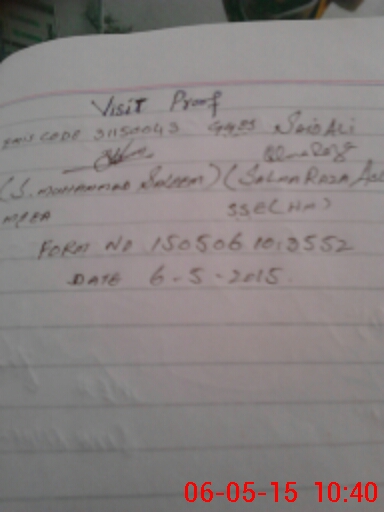 Visit Proof
EMIS CODE 31150043 GGES Said Ali
(S. MUHAMMAD SALEEM) (SALMA RAZA
MEEA SSE(HM)
FORM NO
DATE 6-5-2015.
06-05-15 10:40